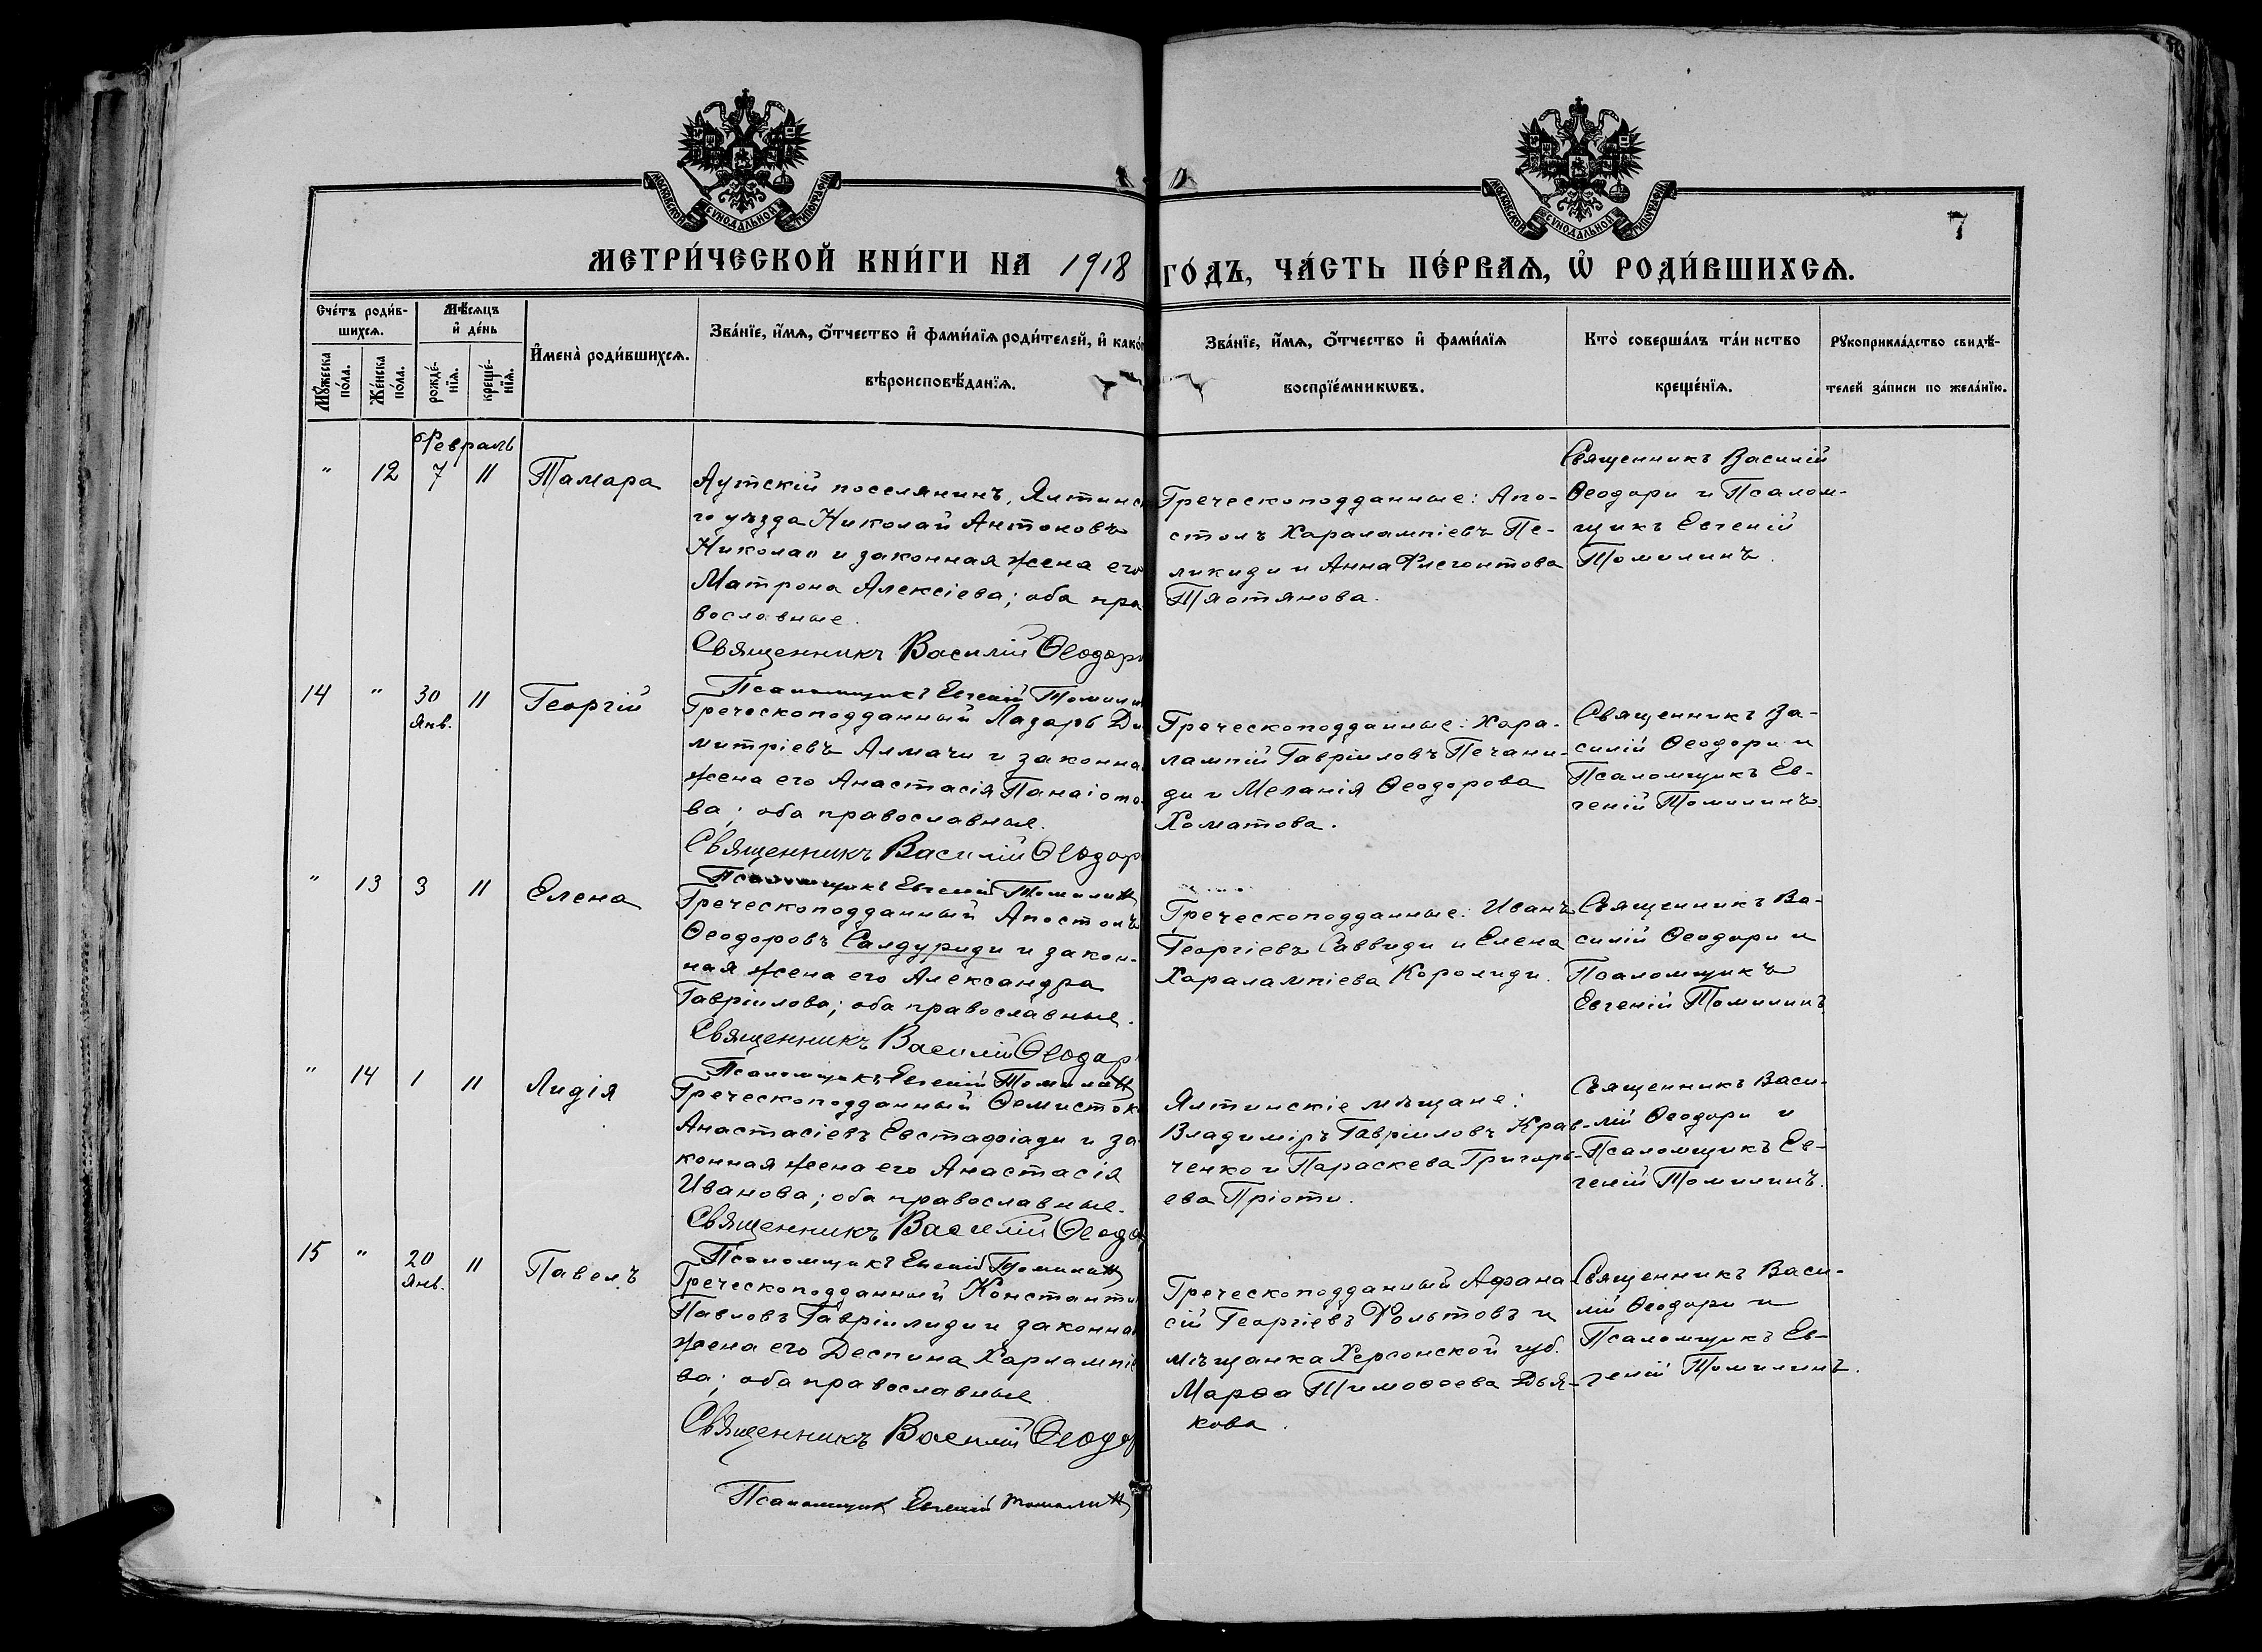 МОСКОВСКОЙ СУНОДАЛЬНОЙ ТИПОГРАФІИ
МОСКОВСКОЙ СУНОДАЛЬНОЙ ТИПОГРАФІИ
7
МЕТРИ́ЧЕСКОЙ КНИ́ГИ НА 1918 ГО́ДЪ, ЧА́СТЬ ПЕ́РВАѦ, Ѡ҆ РОДИ́ВШИХСѦ.
Сче́тъ роди́в-
шихсѧ.
Мѣ́сѧцъ
и҆ де́нь
Мꙋ́жеска
по́ла.
Же́нска
по́ла.
рожде́-
нїѧ.
креще́-
нїѧ.
И҆мена̀ роди́вшихсѧ.
Зва́нїе, и҆́мѧ, ѻ҆́тчество и҆ фами́лїѧ роди́телей, и҆ како́г
вѣроисповѣ́данїѧ.
Зва́нїе, и҆́мѧ, ѻ҆́тчество и҆ фами́лїѧ
воспрїе́мникѡвъ.
Кто̀ соверша́лъ та́инство
креще́нїѧ.
Рꙋкоприкла́дство свидѣ́-
телей за́писи по жела́нїю.
Февраль
" 12 7 11 Тамара
Аутскій поселянинъ, Ялтинск
го уѣзда Николай Антоновъ
Никола и законная жена его
Матрона Алексіева; оба пра
вославные.
Священникъ Василій Ѳеодори
Псаломщикъ Евгеній Томилин
Греческоподданные: Апо-
столъ Харалампіевъ Пе-
ликиди и Анна
Тяотянова.
Священникъ Василій
Ѳеодори и Псалом-
щикъ Евгеній
Томилинъ.
14 " 30 11 Георгій
Янв.
Греческоподданный Лазарь Ди
митріевъ Алмачи и законна
жена его Анастасія Панаіото
ва; оба православные.
Священникъ Василій Ѳеодор
Псаломщикъ Евгеній Томилин
Греческоподданные: Хара-
лампій Гавріиловъ Печани-
ди и Меланія Ѳеодорова
Хоматова.
Священникъ Ва-
силій Ѳеодори и
Псаломщикъ Ев-
геній Томилинъ.
" 13 3 11 Елена
Греческоподданный Апостолъ
Ѳеодоровъ Салдуриди и закон-
ная жена его Александра
Гавріилова; оба православные.
Священникъ Василій Ѳеодор
Псаломщикъ Евгеній Томилин
Греческоподданные: Иванъ
Георгіевъ Саввиди и Елена
Харалампіева Королиди.
Священникъ Ва-
силій Ѳеодори и
Псаломщикъ
Евгеній Томилинъ
" 14 1 11 Лидія
Греческоподданный Ѳемисток
Анастасіевъ Евстафіади и за
конная жена его Анастасія
Иванова; оба православные.
Священникъ Василій Ѳеодо
Псаломщикъ Евгеній Томилин
Ялтинскіе мѣщане:
Владиміръ Гавріиловъ Крав-
ченко и Параскева Григорь-
ева Пріоти.
Священникъ Васи-
лій Ѳеодори и
Псаломщикъ Ев-
геній Томилинъ.
15 " 20 11 Павелъ
Янв.
Греческоподданный Константи
Павловъ Гавріилиди и законна
жена его Деспина Харлампіе
ва; оба православные
Священникъ Василій Ѳеодо
Псаломщик Евгеній Томилин
Греческоподданный Афана-
сій Георгіевъ Фольтовъ и
мѣщанка Херсонской губ.
Марѳа Тимоѳеева Дья-
кова.
Священникъ Васи-
лій Ѳеодори и
Псаломщикъ Ев-
геній Томилинъ.